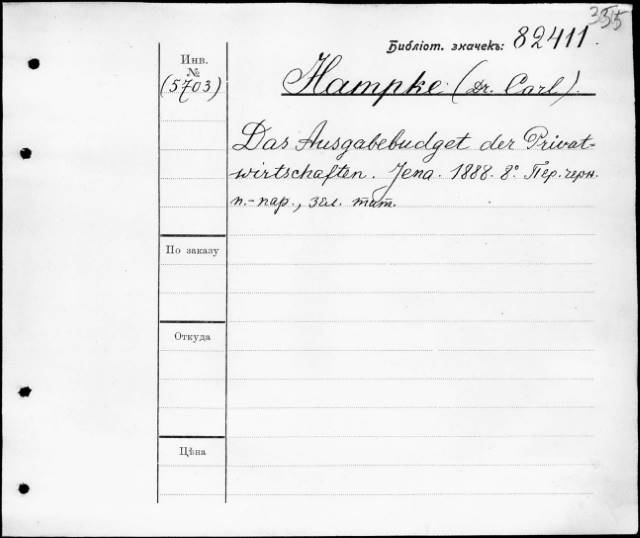 335
Библіот. значекъ: 82411.
Инв.
№
(5703)
Hampke (Dr. Carl).
Das Ausgabebudget der Privat-
wirtschaften. Jena. 1888. 8°. Пер. черн.
п.-пар., зел. тит.
По заказу
Откуда
Цѣна